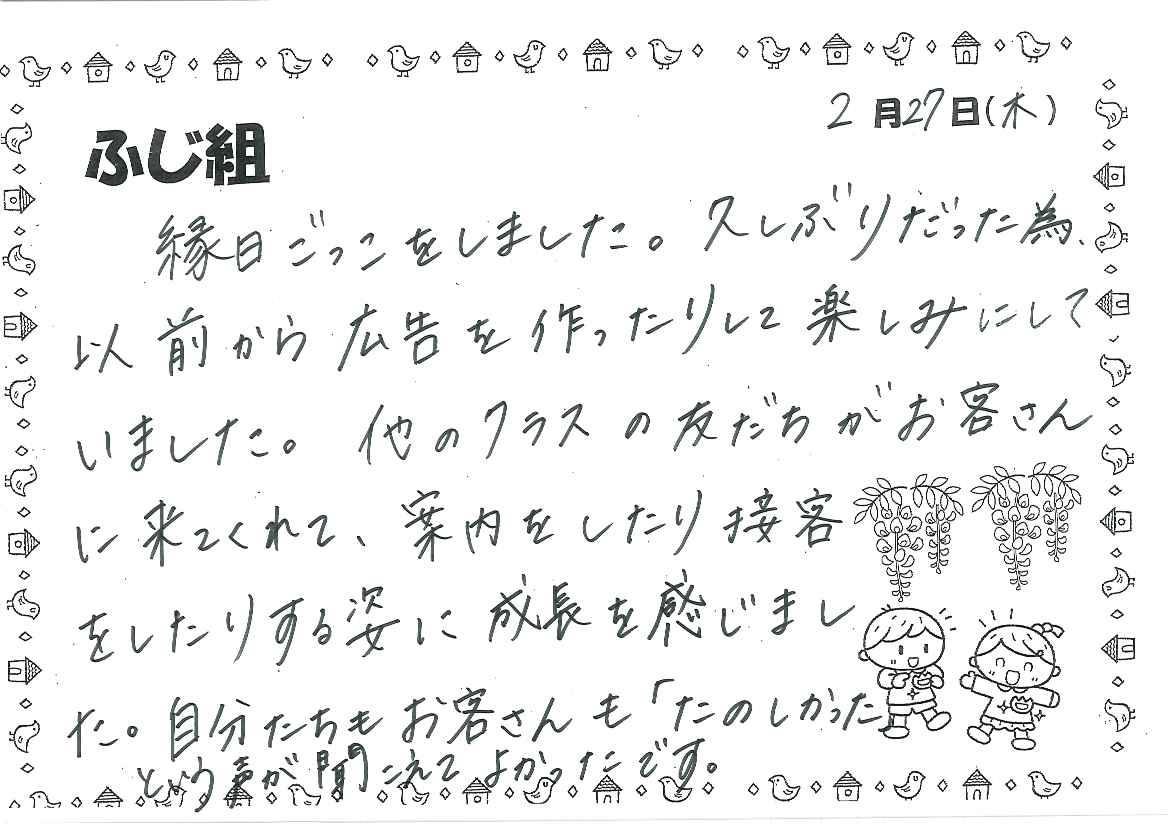 2月27日(木)
ふじ組
縁日ごっこをしました。久しぶりだった為、
以前から広告を作ったりして楽しみにして
いました。他のクラスの友だちがお客さん
に来てくれて、案内をしたり接客
をしたりする姿に成長を感じまし
た。自分たちもお客さんも「たのしかった」
という声が聞こえてよかったです。